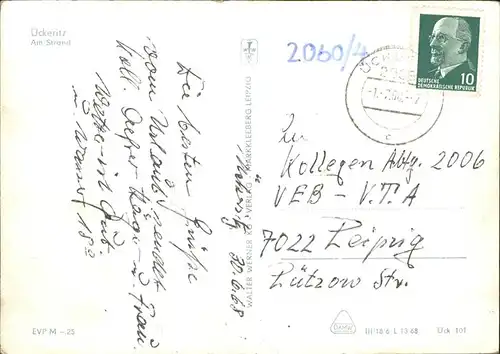 Ückeritz
Am Strand
Ückeritz, 30.6.68
Die besten Grüße
vom Urlaub sendet
Koll. u. Frau
Wetter ist gut
u. Wasser 18°
VERLAG
WALTER WERNER KG MARKKLEEBERG LEIPZIG
2060/4
DEUTSCHE
DEMOKRATISCHE REPUBLIK
10
An
Kollegen Abtg. 2006
VEB - V.T.A
7022 Leipzig
Lützow Str.
EVP M -.25
III 18 6 L 13 68
Ück 101